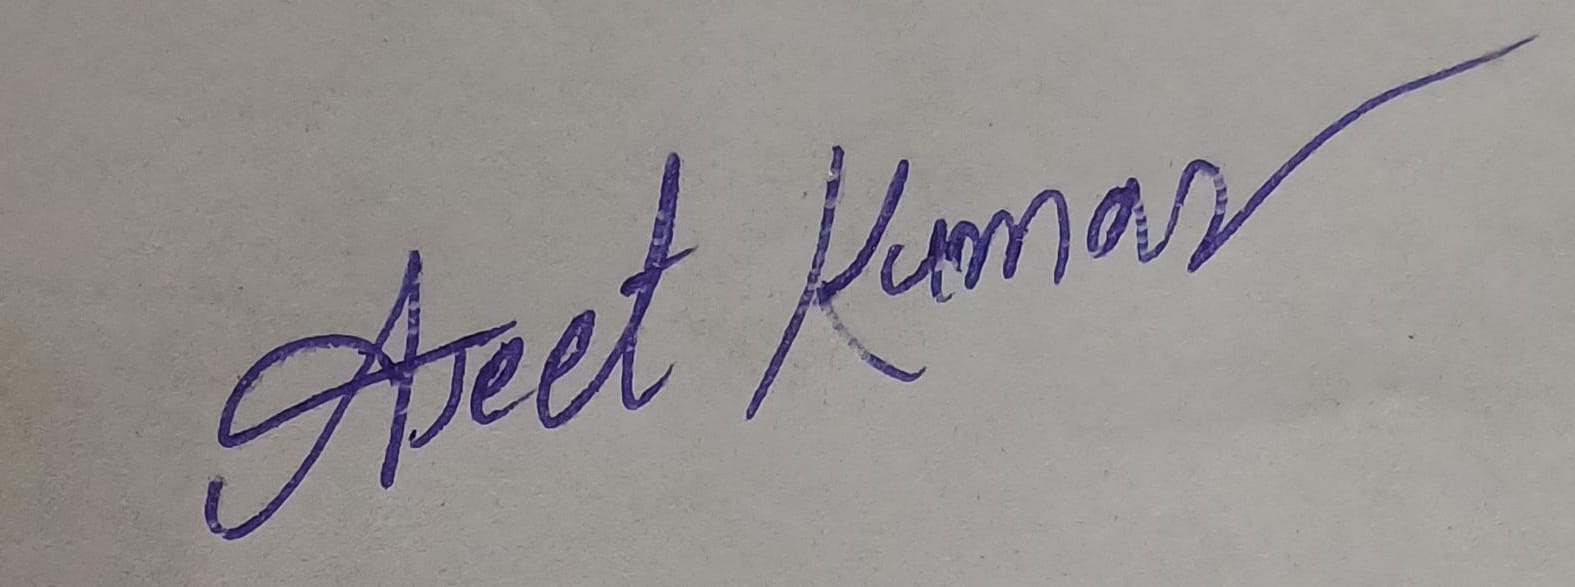 Ajeet Kumar